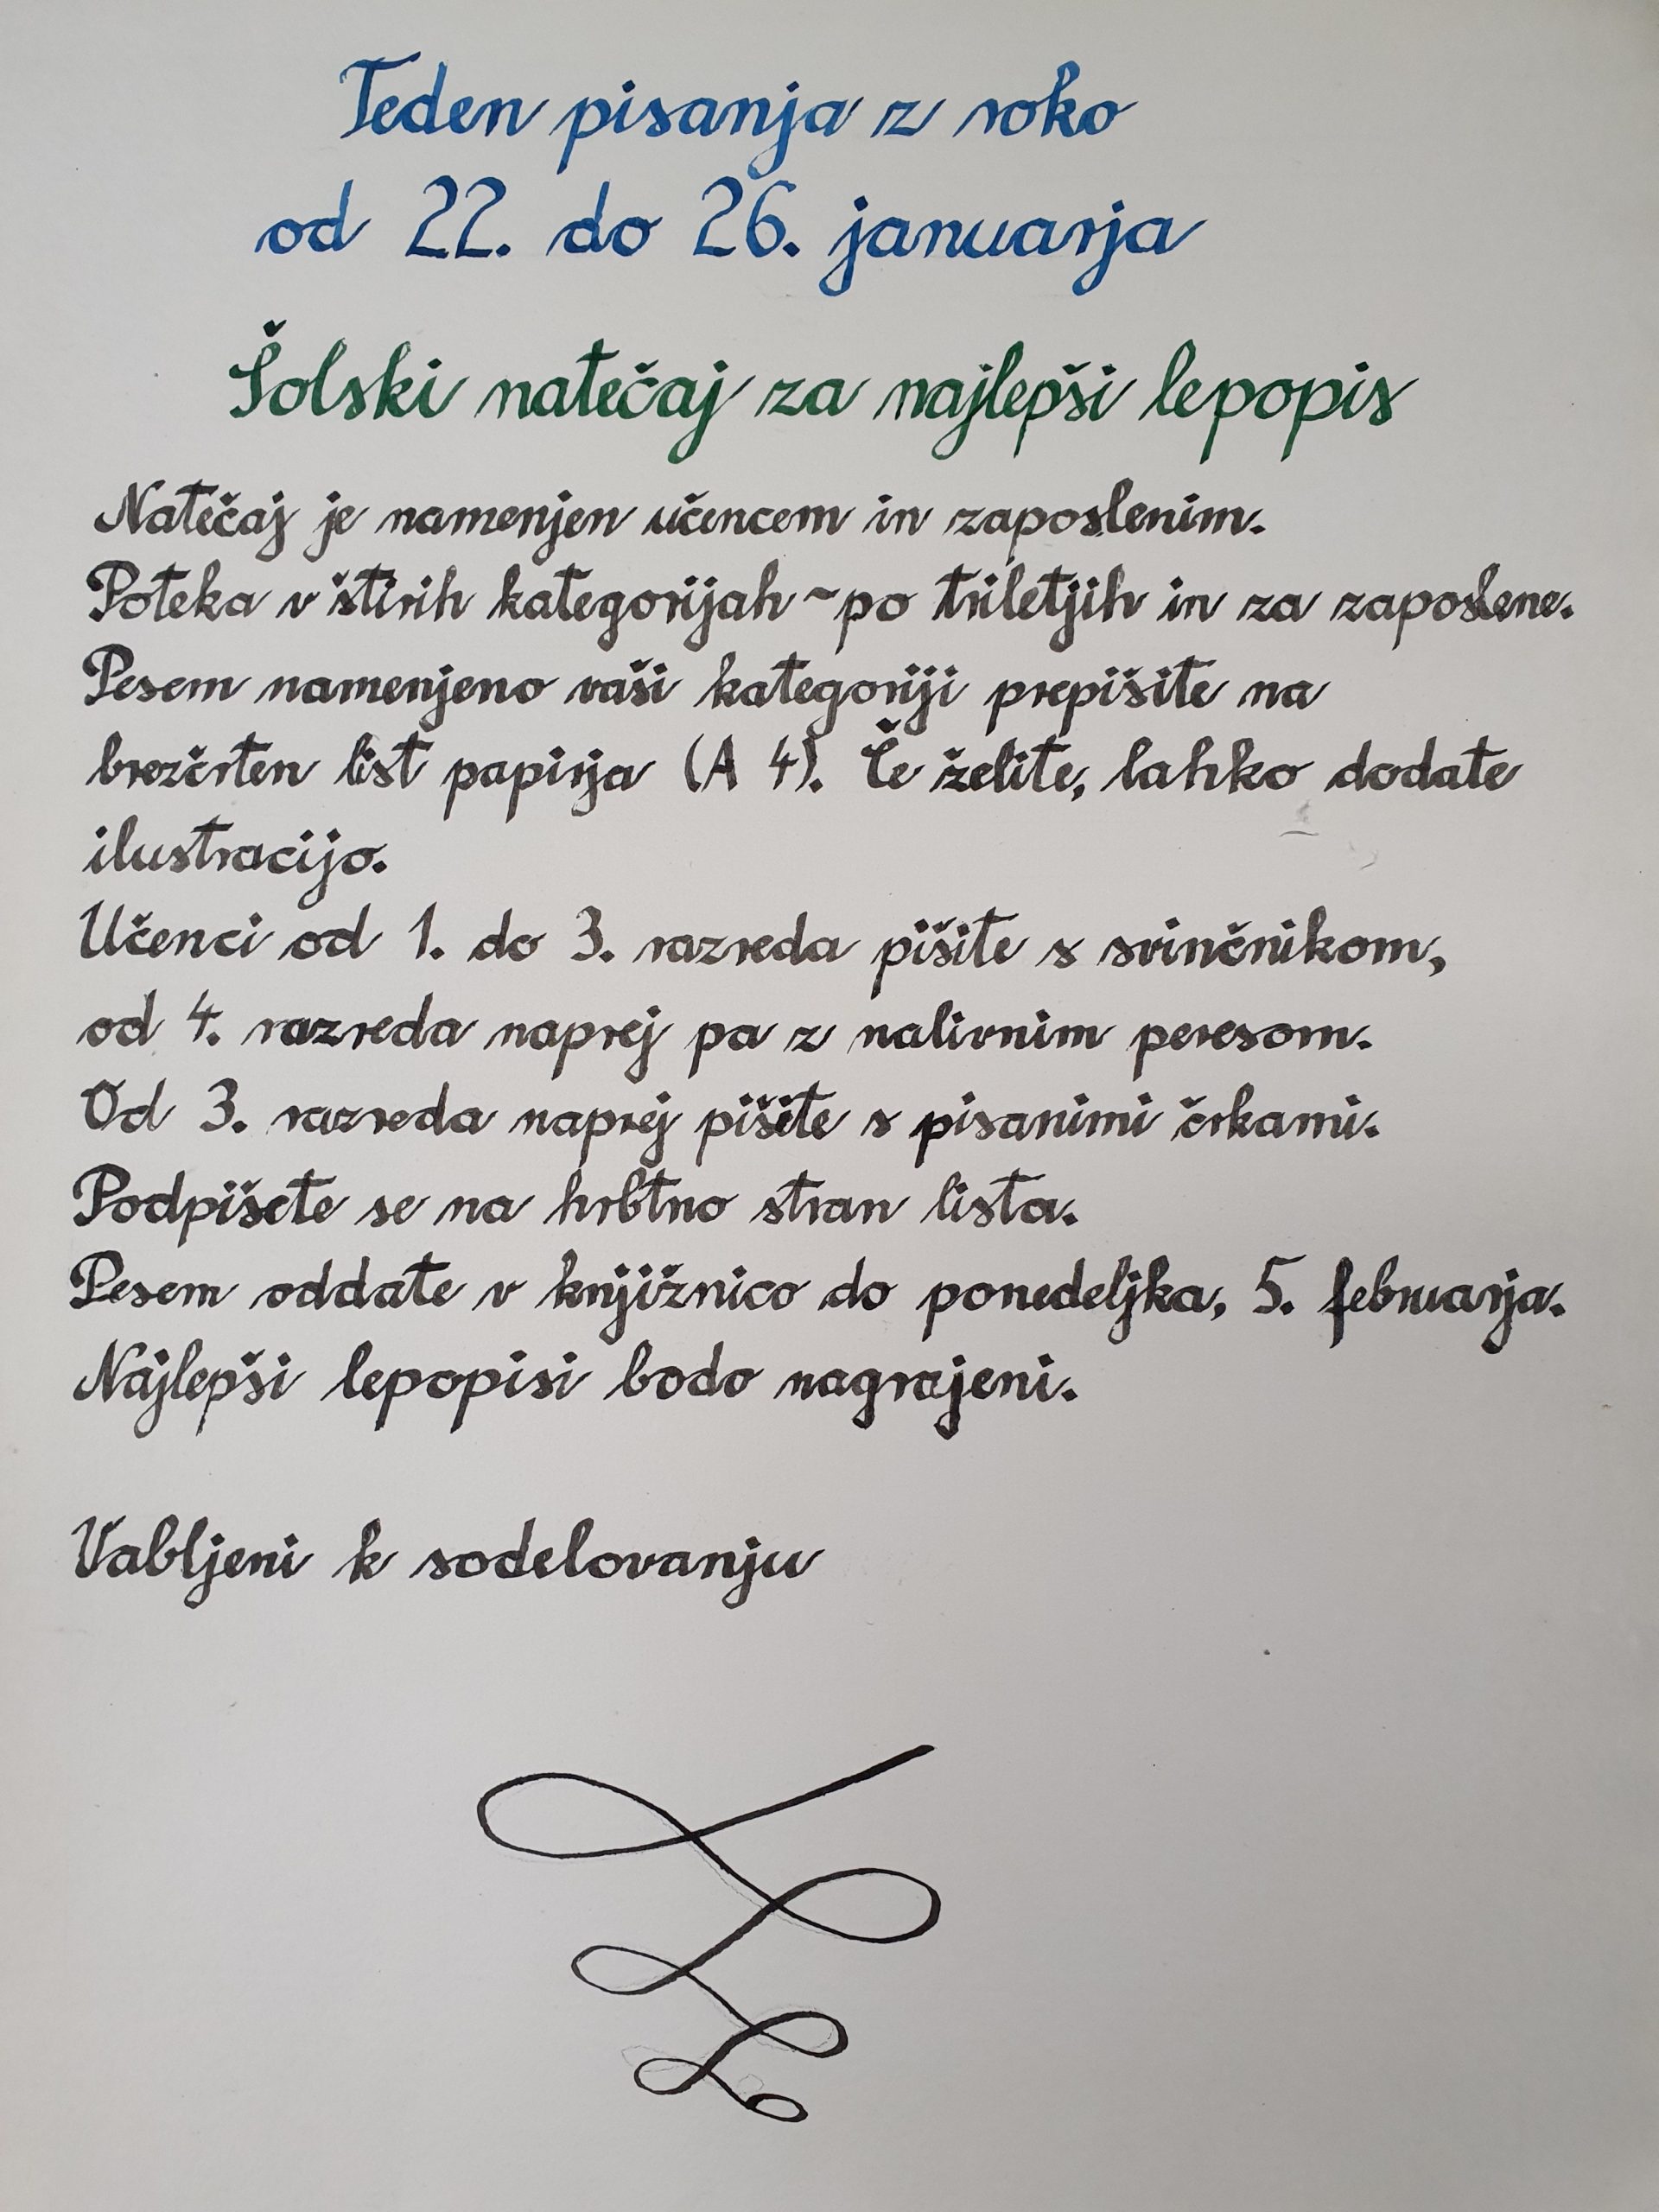 Teden pisanja z roko
od 22. do 26. januarja
Šolski natečaj za najlepši lepopis
Natečaj je namenjen učencem in zaposlenim.
Poteka v štirih kategorijah ~ po triletjih in za zaposlene.
Pesem namenjeno vaši kategoriji prepišite na
brezčrten list papirja (A 4). Če želite, lahko dodate
ilustracijo.
Učenci od 1. do 3. razreda pišite s svinčnikom,
od 4. razreda naprej pa z nalivnim peresom.
Od 3. razreda naprej pišite s pisanimi črkami.
Podpišete se na hrbtno stran lista.
Pesem oddate v knjižnico do ponedeljka, 5. februarja.
Najlepši lepopisi bodo nagrajeni.
Vabljeni k sodelovanju